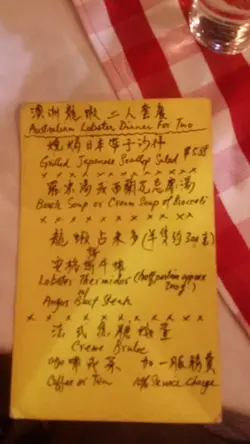 澳洲龍蝦二人套餐
Australian Lobster Dinner For Two
燒焗日本帶子沙律
Grilled Japanese Scallop Salad
x x x x x x x x x x
羅宋湯或西蘭花忌廉湯
Borsch Soup or Cream Soup of Broccoli
x x x x x x x x x x
龍蝦占未多(半隻約300g)
Lobster Thermidor (half portion approx 300g)
w/
安格斯牛柳
Angus Beef Steak
x x x x x x x x x x
法式焦糖燉蛋
Creme Brulee
咖啡或茶 加一服務費
Coffee or Tea 10% Service Charge